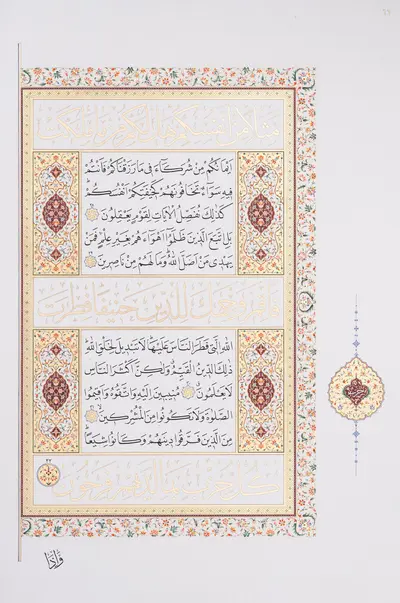 مَثَلًا مِنْ أَنْفُسِكُمْ هَلْ لَكُمْ مِنْ مَا مَلَكَتْ
أَيْمَانُكُمْ مِنْ شُرَكَاءَ فِي مَا رَزَقْنَاكُمْ فَأَنْتُمْ
فِيهِ سَوَاءٌ تَخَافُونَهُمْ كَخِيفَتِكُمْ أَنْفُسَكُمْ
كَذٰلِكَ نُفَصِّلُ الْآيَاتِ لِقَوْمٍ يَعْقِلُونَ
بَلِ اتَّبَعَ الَّذِينَ ظَلَمُوا أَهْوَاءَهُمْ بِغَيْرِ عِلْمٍ فَمَنْ
يَهْدِي مَنْ أَضَلَّ اللَّهُ وَمَا لَهُمْ مِنْ نَاصِرِينَ
فَأَقِمْ وَجْهَكَ لِلدِّينِ حَنِيفًا فِطْرَتَ
اللَّهِ الَّتِي فَطَرَ النَّاسَ عَلَيْهَا لَا تَبْدِيلَ لِخَلْقِ اللَّهِ
ذٰلِكَ الدِّينُ الْقَيِّمُ وَلٰكِنَّ أَكْثَرَ النَّاسِ
لَا يَعْلَمُونَ مُنِيبِينَ إِلَيْهِ وَاتَّقُوهُ وَأَقِيمُوا
الصَّلٰوةَ وَلَا تَكُونُوا مِنَ الْمُشْرِكِينَ
مِنَ الَّذِينَ فَرَّقُوا دِينَهُمْ وَكَانُوا شِيَعًا
كُلُّ حِزْبٍ بِمَا لَدَيْهِمْ فَرِحُونَ
وَإِذَا